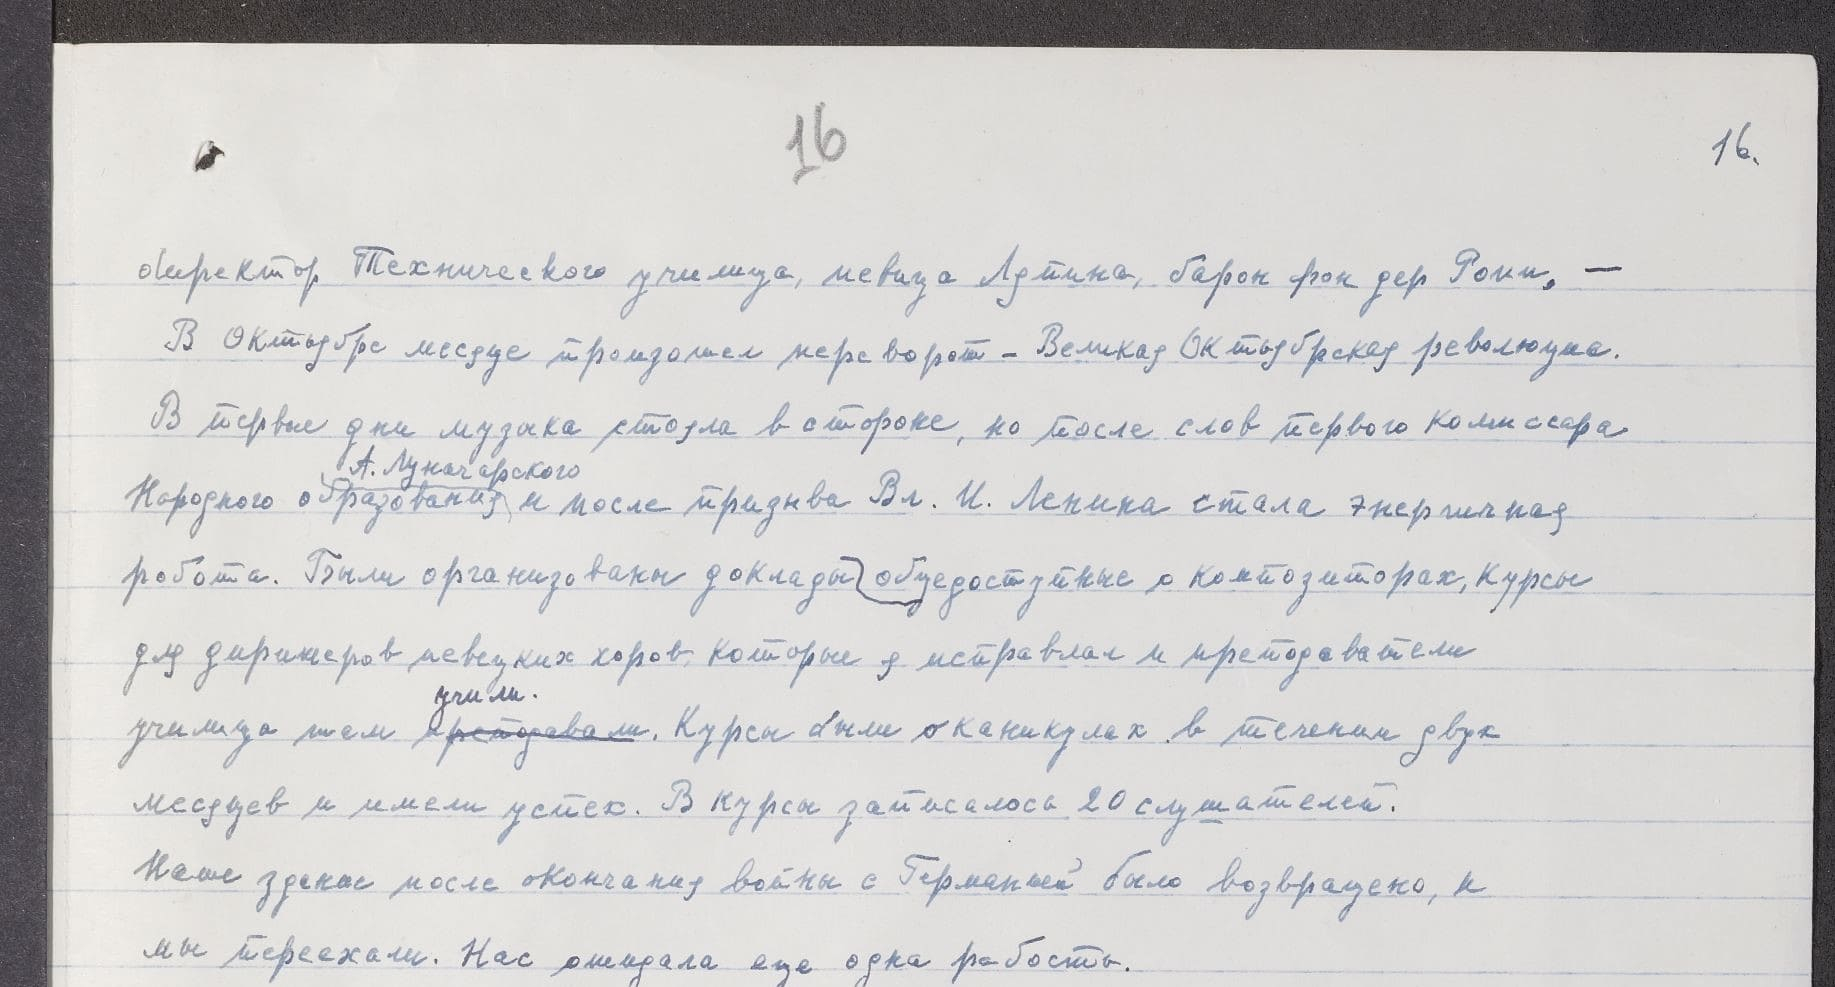 16
16.
директор Технического училища, певица Лятина, барон фон дер Ропп, —
В Октябре месяце произошел переворот - Великая Октябрская революция.
В первые дни музыка стояла в стороне, но после слов первого комиссара
А. Луначарского
Народного образования и после призыва Вл. И. Ленина стала энергичная
работа. Были организованы доклады общедоступные о композиторах, курсы
для дирижеров певецких хоров, которые я исправлял и преподаватели
учили.
училища там преподавали. Курсы были в каникулах в течении двух
месяцев и имели успех. В курсы записалось 20 слушателей.
Наше здание после окончания войны с Германией было возвращено, и
мы переехали. Нас ожидала еще одна работа.